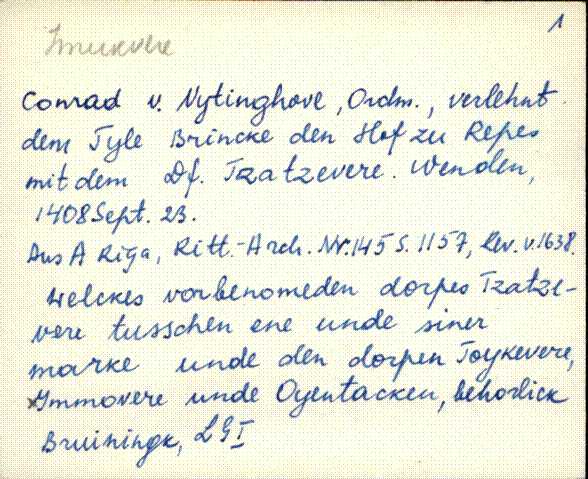 1
Imukvere
Conrad v. Nytinghove, Ordm., verlehnt
dem Tyle Brincke den Hof zu Repes
mit dem Df. Tzatzevere. Wenden,
1408 Sept. 23.
Aus A Riga, Ritt.-Arch. Nr. 145 S. 1157, Rev. v. 1638.
welckes vorbenomeden dorpes Tzatze-
vere tusschen ene unde siner
marke unde den dorpen Toykevere,
Ymmovere unde Oyentacken, behorlick
Bruiningk, LG I